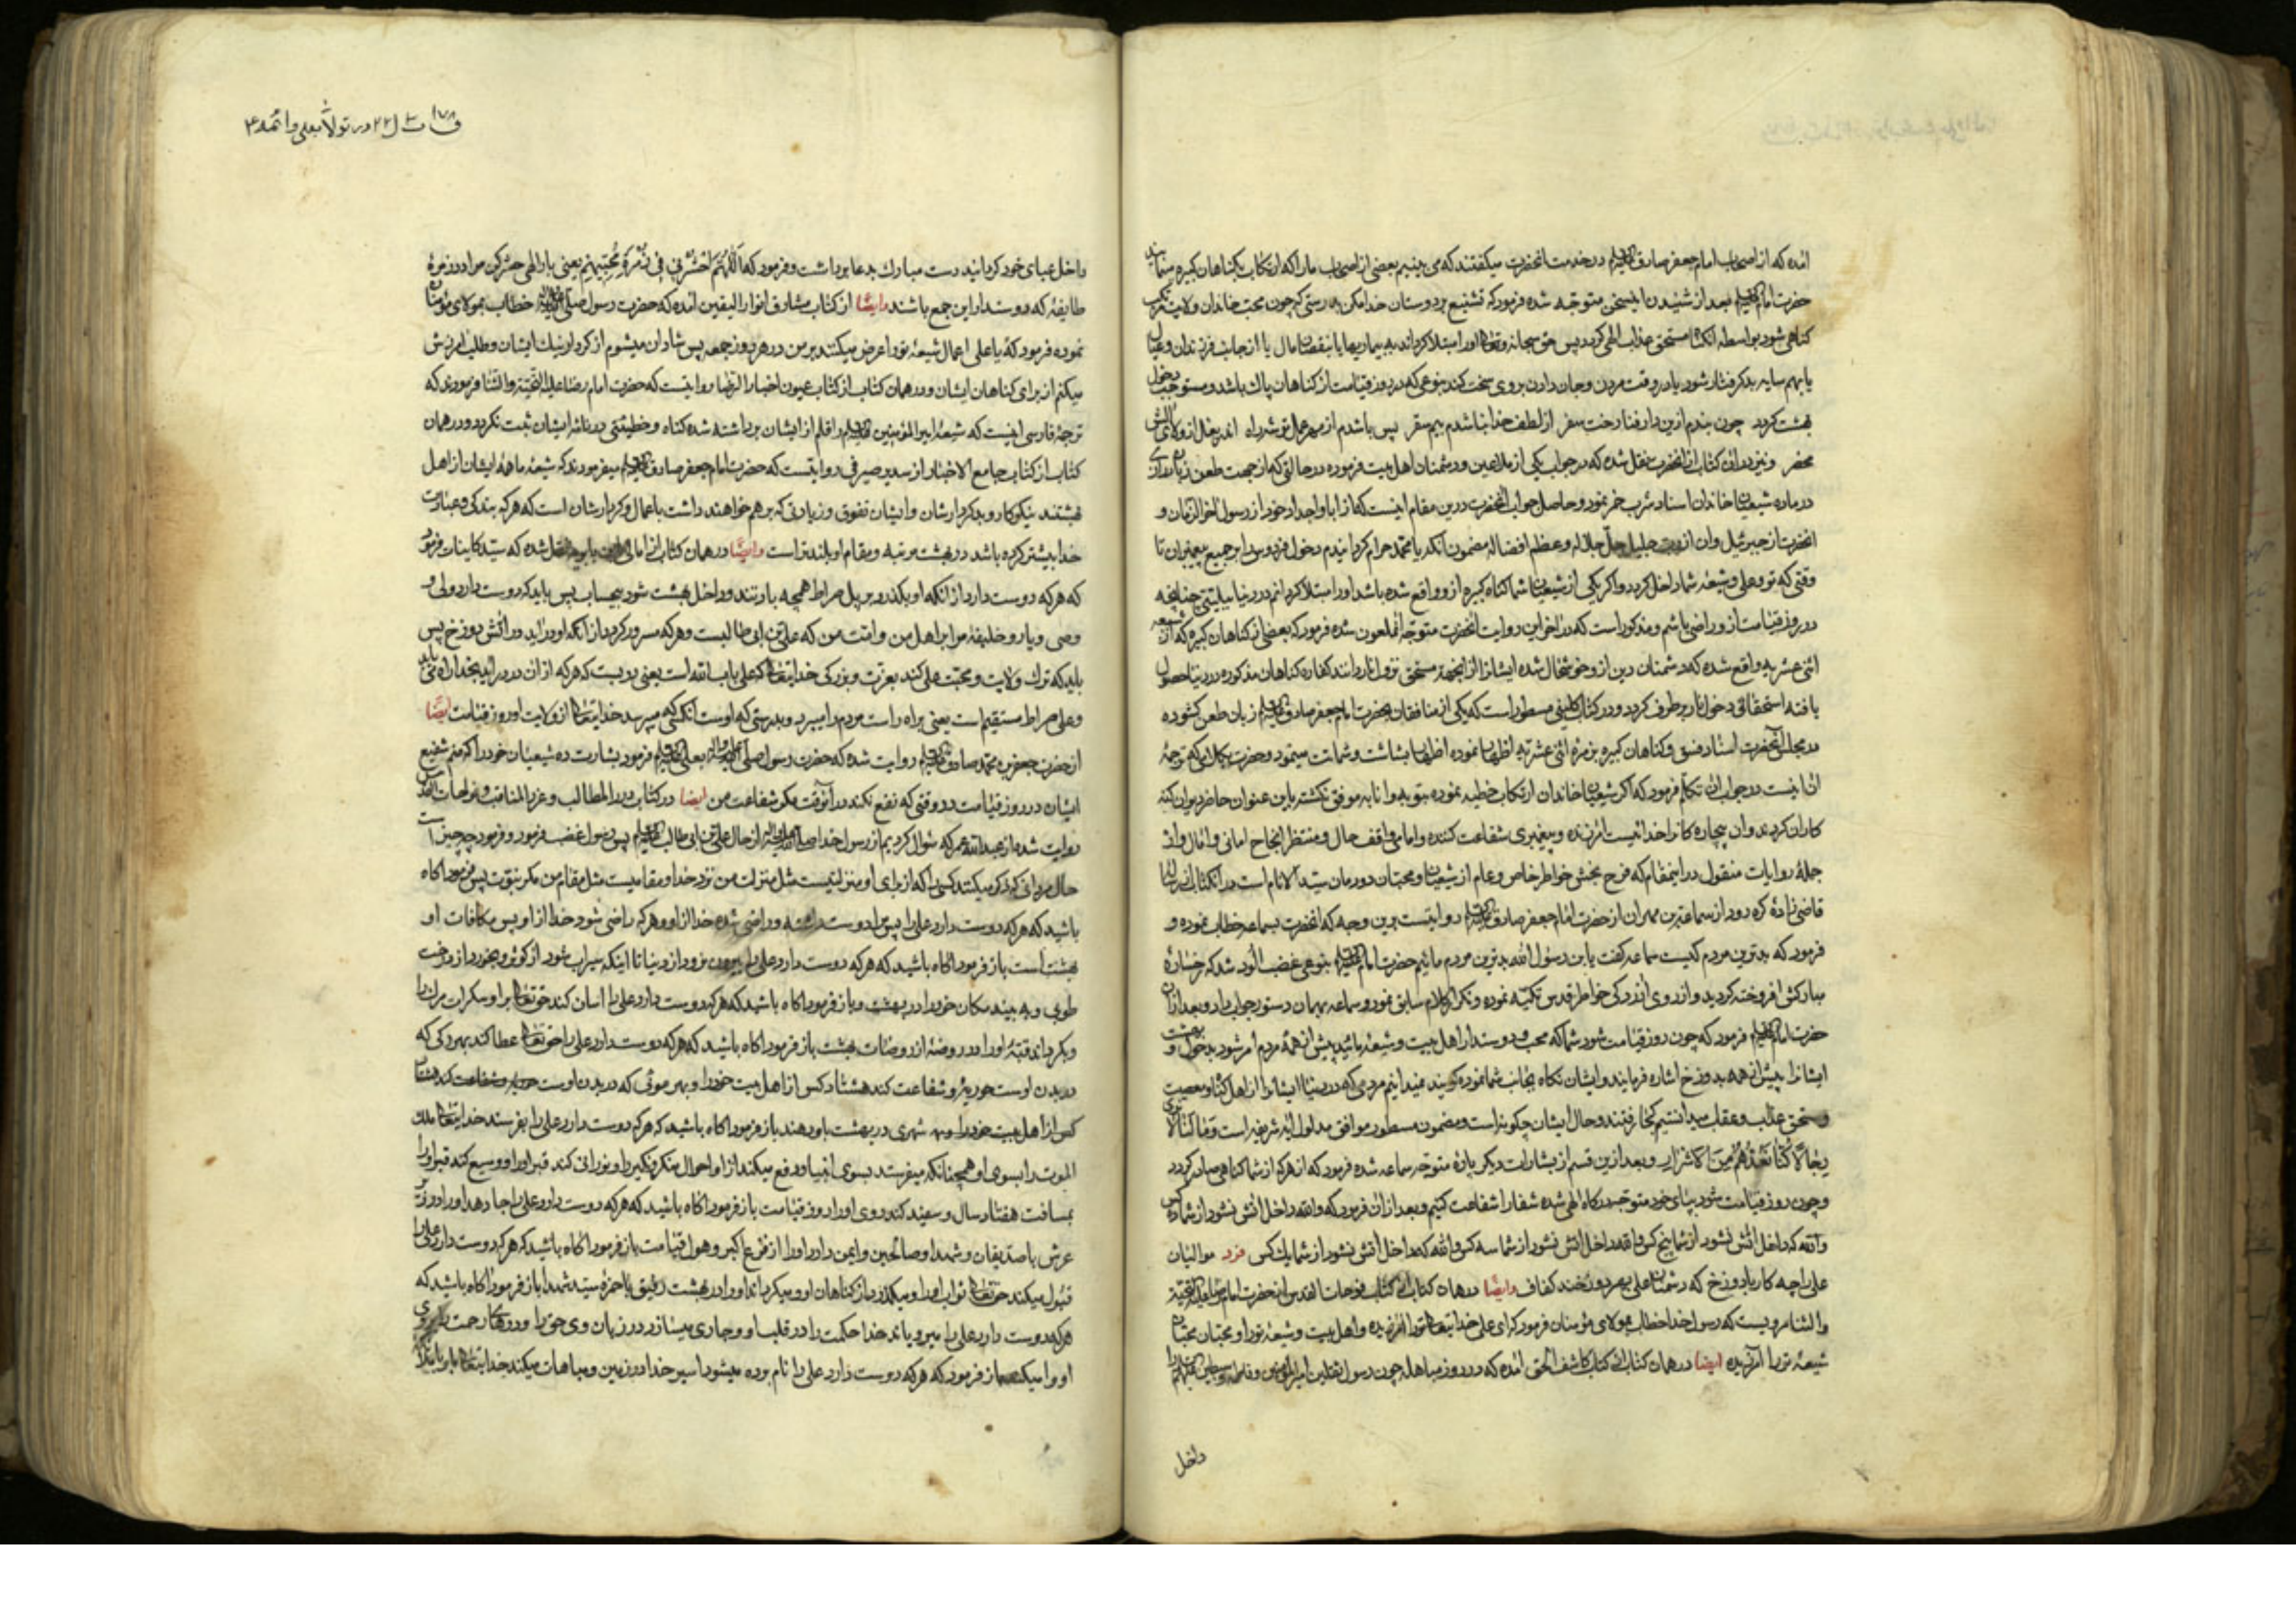 امده که از اصحاب امام جعفر صادق در خدمت انحضرت میگفتند که می بینیم بعضی از اصحاب ما را که ارتکاب بگناهان کبیره
حضرت امام بعد از شنیدن اینسخن متوجه شده فرمود که تشنیع بر دوستان خدا مکن بدرستی که چون محب خاندان ولایت
کناهی شود بواسطه انکه مستحق عذاب الهی کردد پس حق سبحانه وتعالی او را مبتلا کرداند به بیماریها یا بنقصان مال یا از جانب فرزندان وعیال
یا بهم سایه بد کرفتار شود یا در وقت مردن وجان دادن بروی سخت کند بنوعی که در روز قیامت از کناهان پاک باشد ومستوجب دخول
بهشت کردد چون بندم ازین دار فنا رخت سفر از لطف خدا نباشدم بیم سقر پس باشدم از مهر علی توشه راه
محفر ونیز در ان کتاب از انحضرت نقل شده که در جواب یکی از ملاعین ودشمنان اهل بیت فرموده در حالتی که از جهت طعن زبان درازی
در ماده شیعیان خاندان اسناد شرب خمر نمود وحاصل جواب انحضرت درین مقام اینست که از ابا واجداد خود از رسول اخر الزمان و
انحضرت از جبرئیل وان از رب جلیل جل جلاله وعظم افضاله مضمون انکه یا محمد حرام کردانیدم دخول فردوس را بر جمیع پیغمبران تا
وقتی که تو وعلی وشیعه شما داخل کردد واکر یکی از شیعیان شما کناه کبیره ازو واقع شده باشد او را مبتلا کردانم در دنیا ببلیتی چنانچه
در روز قیامت ازو راضی باشم ومذکور است که در اخر این روایت انحضرت متوجه انملعون شده فرمود که بعضی از کناهان کبیره که از شیعه
اثنی عشریه واقع شده که دشمنان دین ازو خوشحال شده ایشانرا از اینجهة مستحق نار دانند کفاره کناهان مذکوره در دنیا حصول
یافته استحقاق دخول نار برطرف کردد ودر کتاب کلینی مسطور است که یکی از منافقان بحضرت امام جعفر صادق زبان طعن کشوده
در مجلس انحضرت اسناد فسق وکناهان کبیره بزمرهٔ اثنی عشریه اظهار نموده اظهار بشاشت وشماتت مینمود وحضرت بکلامی که ترجمهٔ
ان اینست در جواب ان تکلم فرمود که اکر شیعیان خاندان ارتکاب خطیه نموده بتوبه وانابه موفق نکشته باین عنوان حاضر دیوان کنه
کاران کردند وان بیچاره کانرا خدائیست امرزنده وپیغمبری شفاعت کننده وامامی واقف حال ومنتظر انجاح امانی وامال واز
جملهٔ روایات منقول در اینمقام که فرح بخش خواطر خاص وعام از شیعیان ومحبان دودمان سید الانام است در انکتاب از
قاضی زاده کره رود از سماعة بن مهران از حضرت امام جعفر صادق روایتست برین وجه که انحضرت بسماعه خطاب نموده و
فرمود که بدترین مردم کیست سماعه کفت یابن رسول الله بدترین مردم مائیم حضرت امام بنوعی غضب الود شد که رخسارهٔ
مبارکش افروخته کردید واز روی ازردکی خواطر اقدس تکیه نموده وتکرار کلام سابق نمود وسماعه بهمان دستور جواب داد وبعد از ان
حضرت امام فرمود که چون روز قیامت شود شما که محب ودوستدار اهل بیت وشیعه مائید پیش از همهٔ مردم امر شود بدخول بهشت و
ایشانرا پیش از همه بدوزخ اشاره فرمایند وایشان نکاه بجانب شما نموده کویند نمیدانیم مردمی که در دنیا ایشانرا از اهل کناه ومعصیت
ومستحق عذاب وعقاب میدانستیم کجا رفتند وحال ایشان چکونه است ومضمون مسطور موافق مدلول ایهٔ شریفه است وَقَالُوا مَا لَنَا لَا نَرَى
رِجَالًا كُنَّا نَعُدُّهُمْ مِنَ الْأَشْرَارِ وبعد ازین قسم از بشارات دیکر باره متوجه سماعه شده فرمود که از هر که از شما کناهی صادر کردد
وچون روز قیامت شود بپای خود متوجه درکاه الهی شده شما را شفاعت کنیم وبعد از ان فرمود که والله داخل اتش نشود از شما ده کس
والله که داخل اتش نشود از شما پنج کس والله داخل اتش نشود از شما سه کس والله که داخل اتش نشود از شما یک کس فرد موالیان
علی را چه کار با دوزخ که دشمنان علی بهر دوزخند کفاف وایضًا در همان کتاب از کتاب فوحات القدس از حضرت امام رضا علیه التحیة
والثنا مرویست که رسول خدا خطاب بمولای مؤمنان فرمود که ای علی خدایتعالی تو را امرزیده واهل بیت وشیعهٔ تو را ومحبان محبان
شیعهٔ تو را امرزیده ایضا در همان کتاب از کتاب کاشف الحق امده که در روز مباهله چون رسول ثقلین امیر المؤمنین وفاطمه وحسنین را
داخل
داخل عبای خود کردانید دست مبارک بدعا برداشت وفرمود که اَللّٰهُمَّ احْشُرْنِي فِي زُمْرَةِ مُحِبِّيهِم یعنی بار الهی حشر کن مرا در زمرهٔ
طایفهٔ که دوستدار این جمع باشند وایضًا از کتاب مشارق انوار الیقین امده که حضرت رسول خطاب بمولای مؤمنان
نموده فرمود که یا علی اعمال شیعهٔ تو را عرض میکنند بر من در هر روز جمعه پس شادان میشوم از کردار نیک ایشان وطلب امرزش
میکنم از برای کناهان ایشان ودر همان کتاب از کتاب عیون اخبار الرضا روایتست که حضرت امام رضا علیه التحیة والثنا فرمودند که
ترجمهٔ فارسی اینست که شیعهٔ امیر المؤمنین را قلم از ایشان برداشته شده کناه وخطیئتی در نامهٔ ایشان ثبت نکردد ودر همان
کتاب از کتاب جامع الاخبار از سدیر صیرفی روایتست که حضرت امام جعفر صادق میفرمودند که شیعهٔ ما همهٔ ایشان از اهل
بهشتند نیکو کار وبد کردارشان وایشان تفوق وزیادتی که بر هم خواهند داشت باعمال وکردارشان است که هر که بندکی وعبادت
خدا بیشتر کرده باشد در بهشت مرتبه ومقام او بلندتر است وایضًا در همان کتاب از امالی ابن بابویه نقل شده که سید کاینات فرمود
که هر که دوست دارد از انکه او بکذرد بر پل صراط همچه باد تند وداخل بهشت شود بیحساب پس باید که دوست دارد ولی و
وصی ویار وخلیفهٔ مرا بر اهل من وامت من که علی بن ابی طالبست وهر که مسرور کردد از انکه او دراید در اتش دوزخ پس
باید که ترک ولایت ومحبت علی کند بعزت وبزرکی خدایتعالی که علی باب الله است یعنی دریست که هر که از ان در در اید بخدا راه می یابد
وعلی صراط مستقیم است یعنی براه راست مردم را میبرد وبدرستی که اوست انکسی که میپرسد خدایتعالی از ولایت او روز قیامت ایضًا
از حضرت جعفر بن محمد صادق روایت شده که حضرت رسول بعلی فرمود بشارت ده شیعیان خود را که منم شفیع
ایشان در روز قیامت در وقتی که نفع نکند در آنوقت مکر شفاعت من ایضا در کتاب درر المطالب وغرر المناقب وفوحات القدس
روایت شده از عبد الله عمر که سؤال کردیم از رسول خدا از حال علی بن ابی طالب پس رسول غضب فرمود وفرمود چه چیز است
حال مردمانی که ذکر میکنند کسی را که از برای او منزلتیست مثل منزلت من نزد خدا ومقامیست مثل مقام من مکر نبوت پس فرمود اکاه
باشید که هر که دوست دارد علی را پس مرا دوست داشته وراضی شده خدا از او وهر که راضی شود خدا از او پس مکافات او
بهشت است باز فرمود اکاه باشید که هر که دوست دارد علی را بیرون نرود از دنیا تا اینکه سیراب شود از کوثر وبخورد از درخت
طوبی وبه بیند مکان خود را در بهشت وباز فرمود اکاه باشید که هر که دوست دارد علی را اسان کند حقتعالی بر او سکرات مرک را
وبکرداند قبر او را در روضهٔ از روضات بهشت باز فرمود اکاه باشید که هر که دوست دارد علی را حقتعالی عطا کند بهر رکی که
در بدن اوست حوریهٔ وشفاعت کند هشتاد کس از اهل بیت خود را وبهر موئی که در بدن اوست
کس از اهل بیت خود را وبه شهری در بهشت باو دهند باز فرمود اکاه باشید که هر که دوست دارد علی را بفرستد خدایتعالی ملک
الموت را بسوی او همچنانکه میفرستد بسوی انبیا ودفع میکند از او احوال منکر ونکیر را ونورانی کند قبر او را ووسیع کند قبر او را
بمسافت هفتاد سال وسفید کند روی او را روز قیامت باز فرمود اکاه باشید که هر که دوست دارد علی را جا دهد او را در زیر
عرش با صدیقان وشهدا وصالحین وایمن دارد او را از فزع اکبر وهول قیامت باز فرمود اکاه باشید که هر که دوست دارد علی را
قبول میکند حقتعالی ثواب او را ومیکذرد از کناهان او ومیکرداند او را در بهشت رفیق با حمزهٔ سید شهدا باز فرمود اکاه باشید که
هر که دوست دارد علی را میرویاند خدا حکمت را در قلب او وجاری میسازد در زبان وی حق را ودرهای رحمت بر روی
او وا میکند باز فرمود که هر که دوست دارد علی را نام برده میشود اسیر خدا در زمین ومباهات میکند خدایتعالی باو با ملائکه